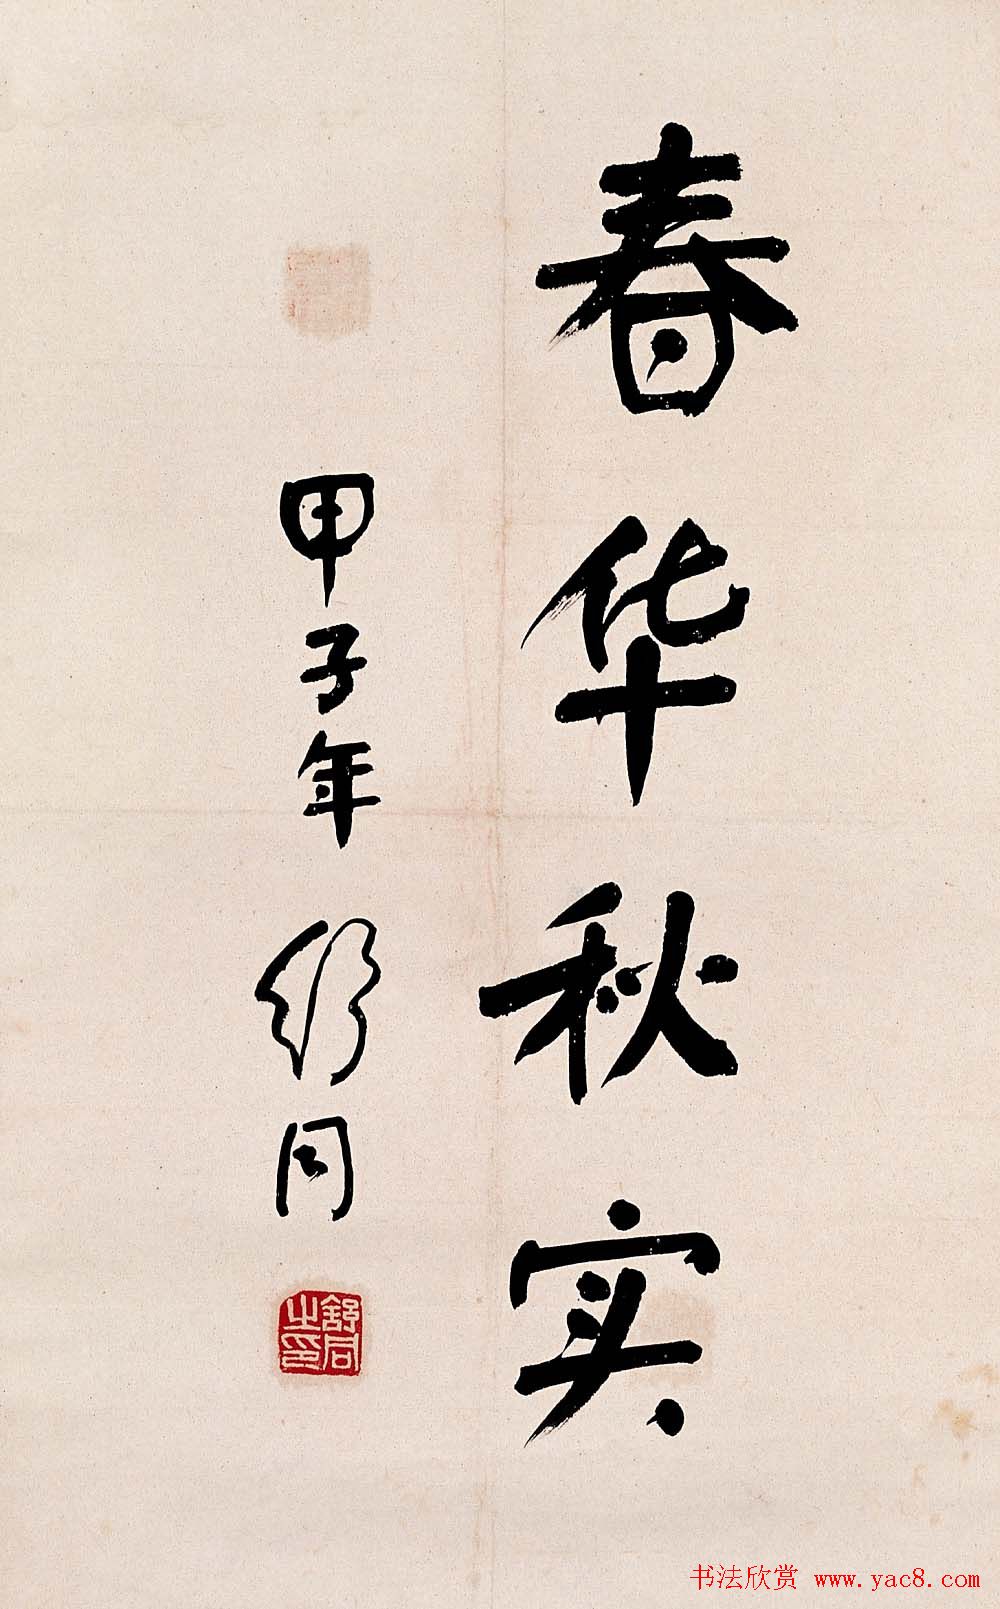 春华秋实
甲子年 舒同
舒同之印
书法欣赏 www.yac8.com